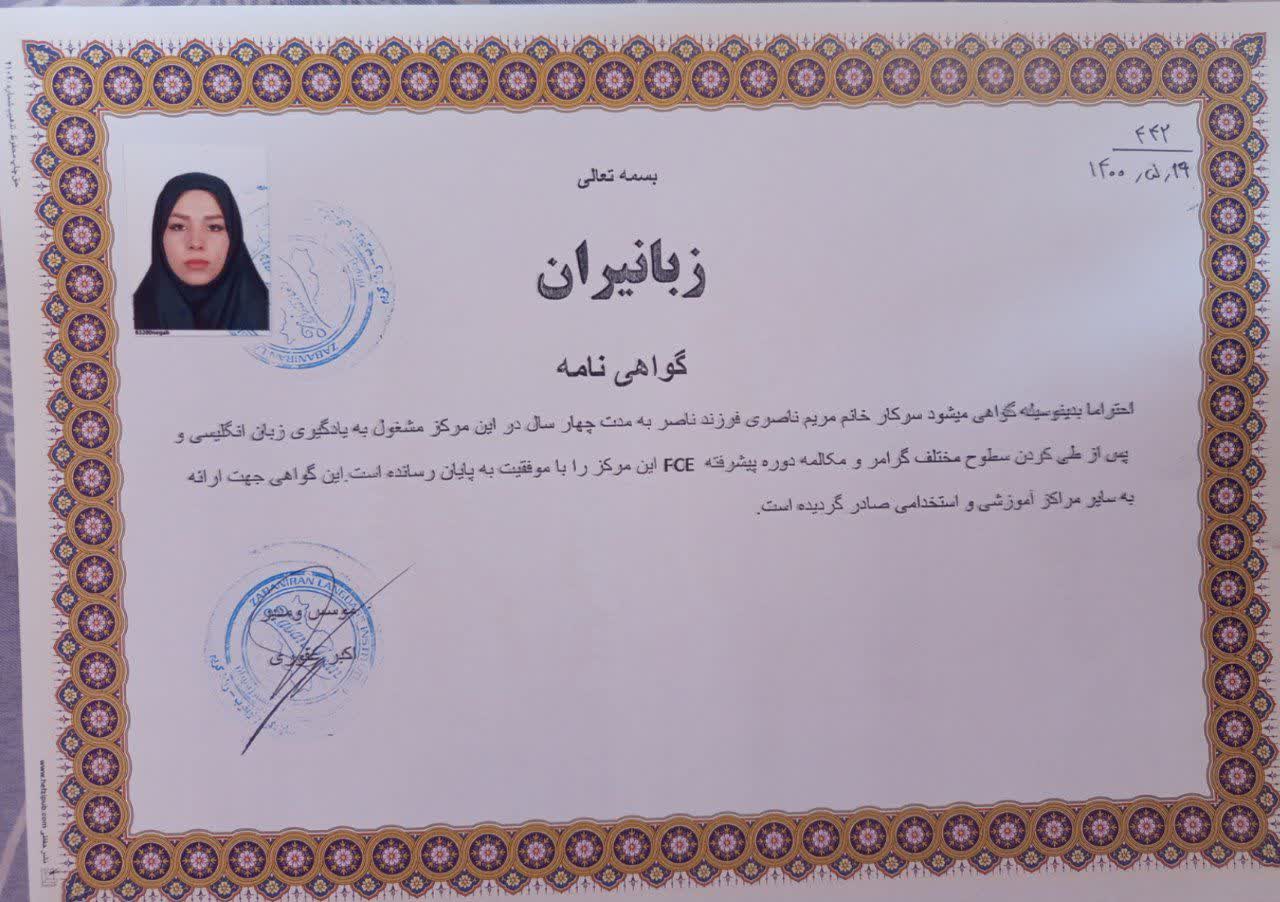 ۴۴۲
۱۴۰۰٫۵٫۱۹
بسمه تعالی
زبانیران
گواهی نامه
احتراما بدینوسیله گواهی میشود سرکار خانم مریم ناصری فرزند ناصر به مدت چهار سال در این مرکز مشغول به یادگیری زبان انگلیسی و
پس از طی کردن سطوح مختلف گرامر و مکالمه دوره پیشرفته FCE این مرکز را با موفقیت به پایان رسانده است.این گواهی جهت ارائه
به سایر مراکز آموزشی و استخدامی صادر گردیده است.
موسس و مدیر
اکبر غفوری
ZABANIRAN LANGUAGE INSTITUTE
ZABANIRAN
www.hefzipub.com